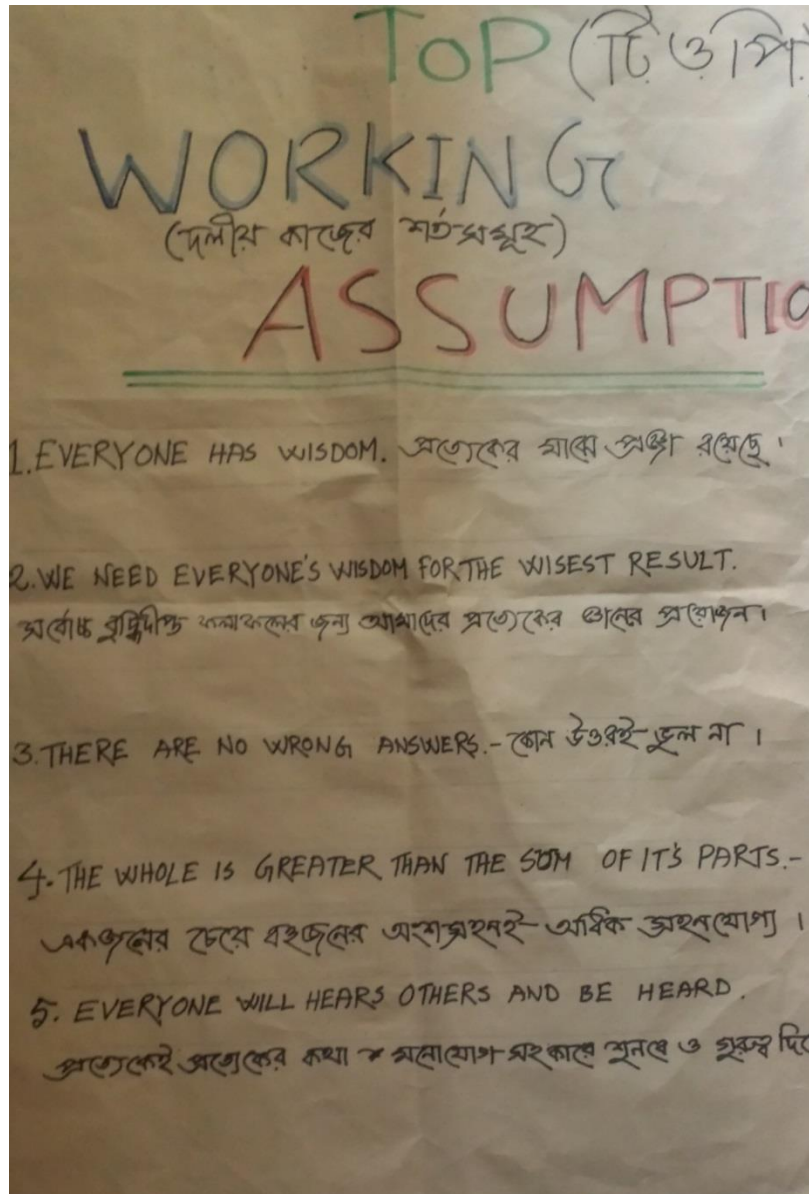 TOP (টিওপি
WORKING
(দলীয় কাজের শর্তসমূহ)
ASSUMPTIO
1. EVERYONE HAS WISDOM. প্রত্যেকের মাঝে প্রজ্ঞা রয়েছে।
2. WE NEED EVERYONE'S WISDOM FOR THE WISEST RESULT.
সর্বোচ্চ বুদ্ধিদীপ্ত ফলাফলের জন্য আমাদের প্রত্যেকের জ্ঞানের প্রয়োজন।
3. THERE ARE NO WRONG ANSWERS.- কোন উত্তরই ভুল না।
4. THE WHOLE IS GREATER THAN THE SUM OF IT'S PARTS.-
একজনের চেয়ে বহুজনের অংশগ্রহনই অধিক গ্রহনযোগ্য।
5. EVERYONE WILL HEARS OTHERS AND BE HEARD.
প্রত্যেকেই প্রত্যেকের কথা মনোযোগ সহকারে শুনবে ও গুরুত্ব দিবে